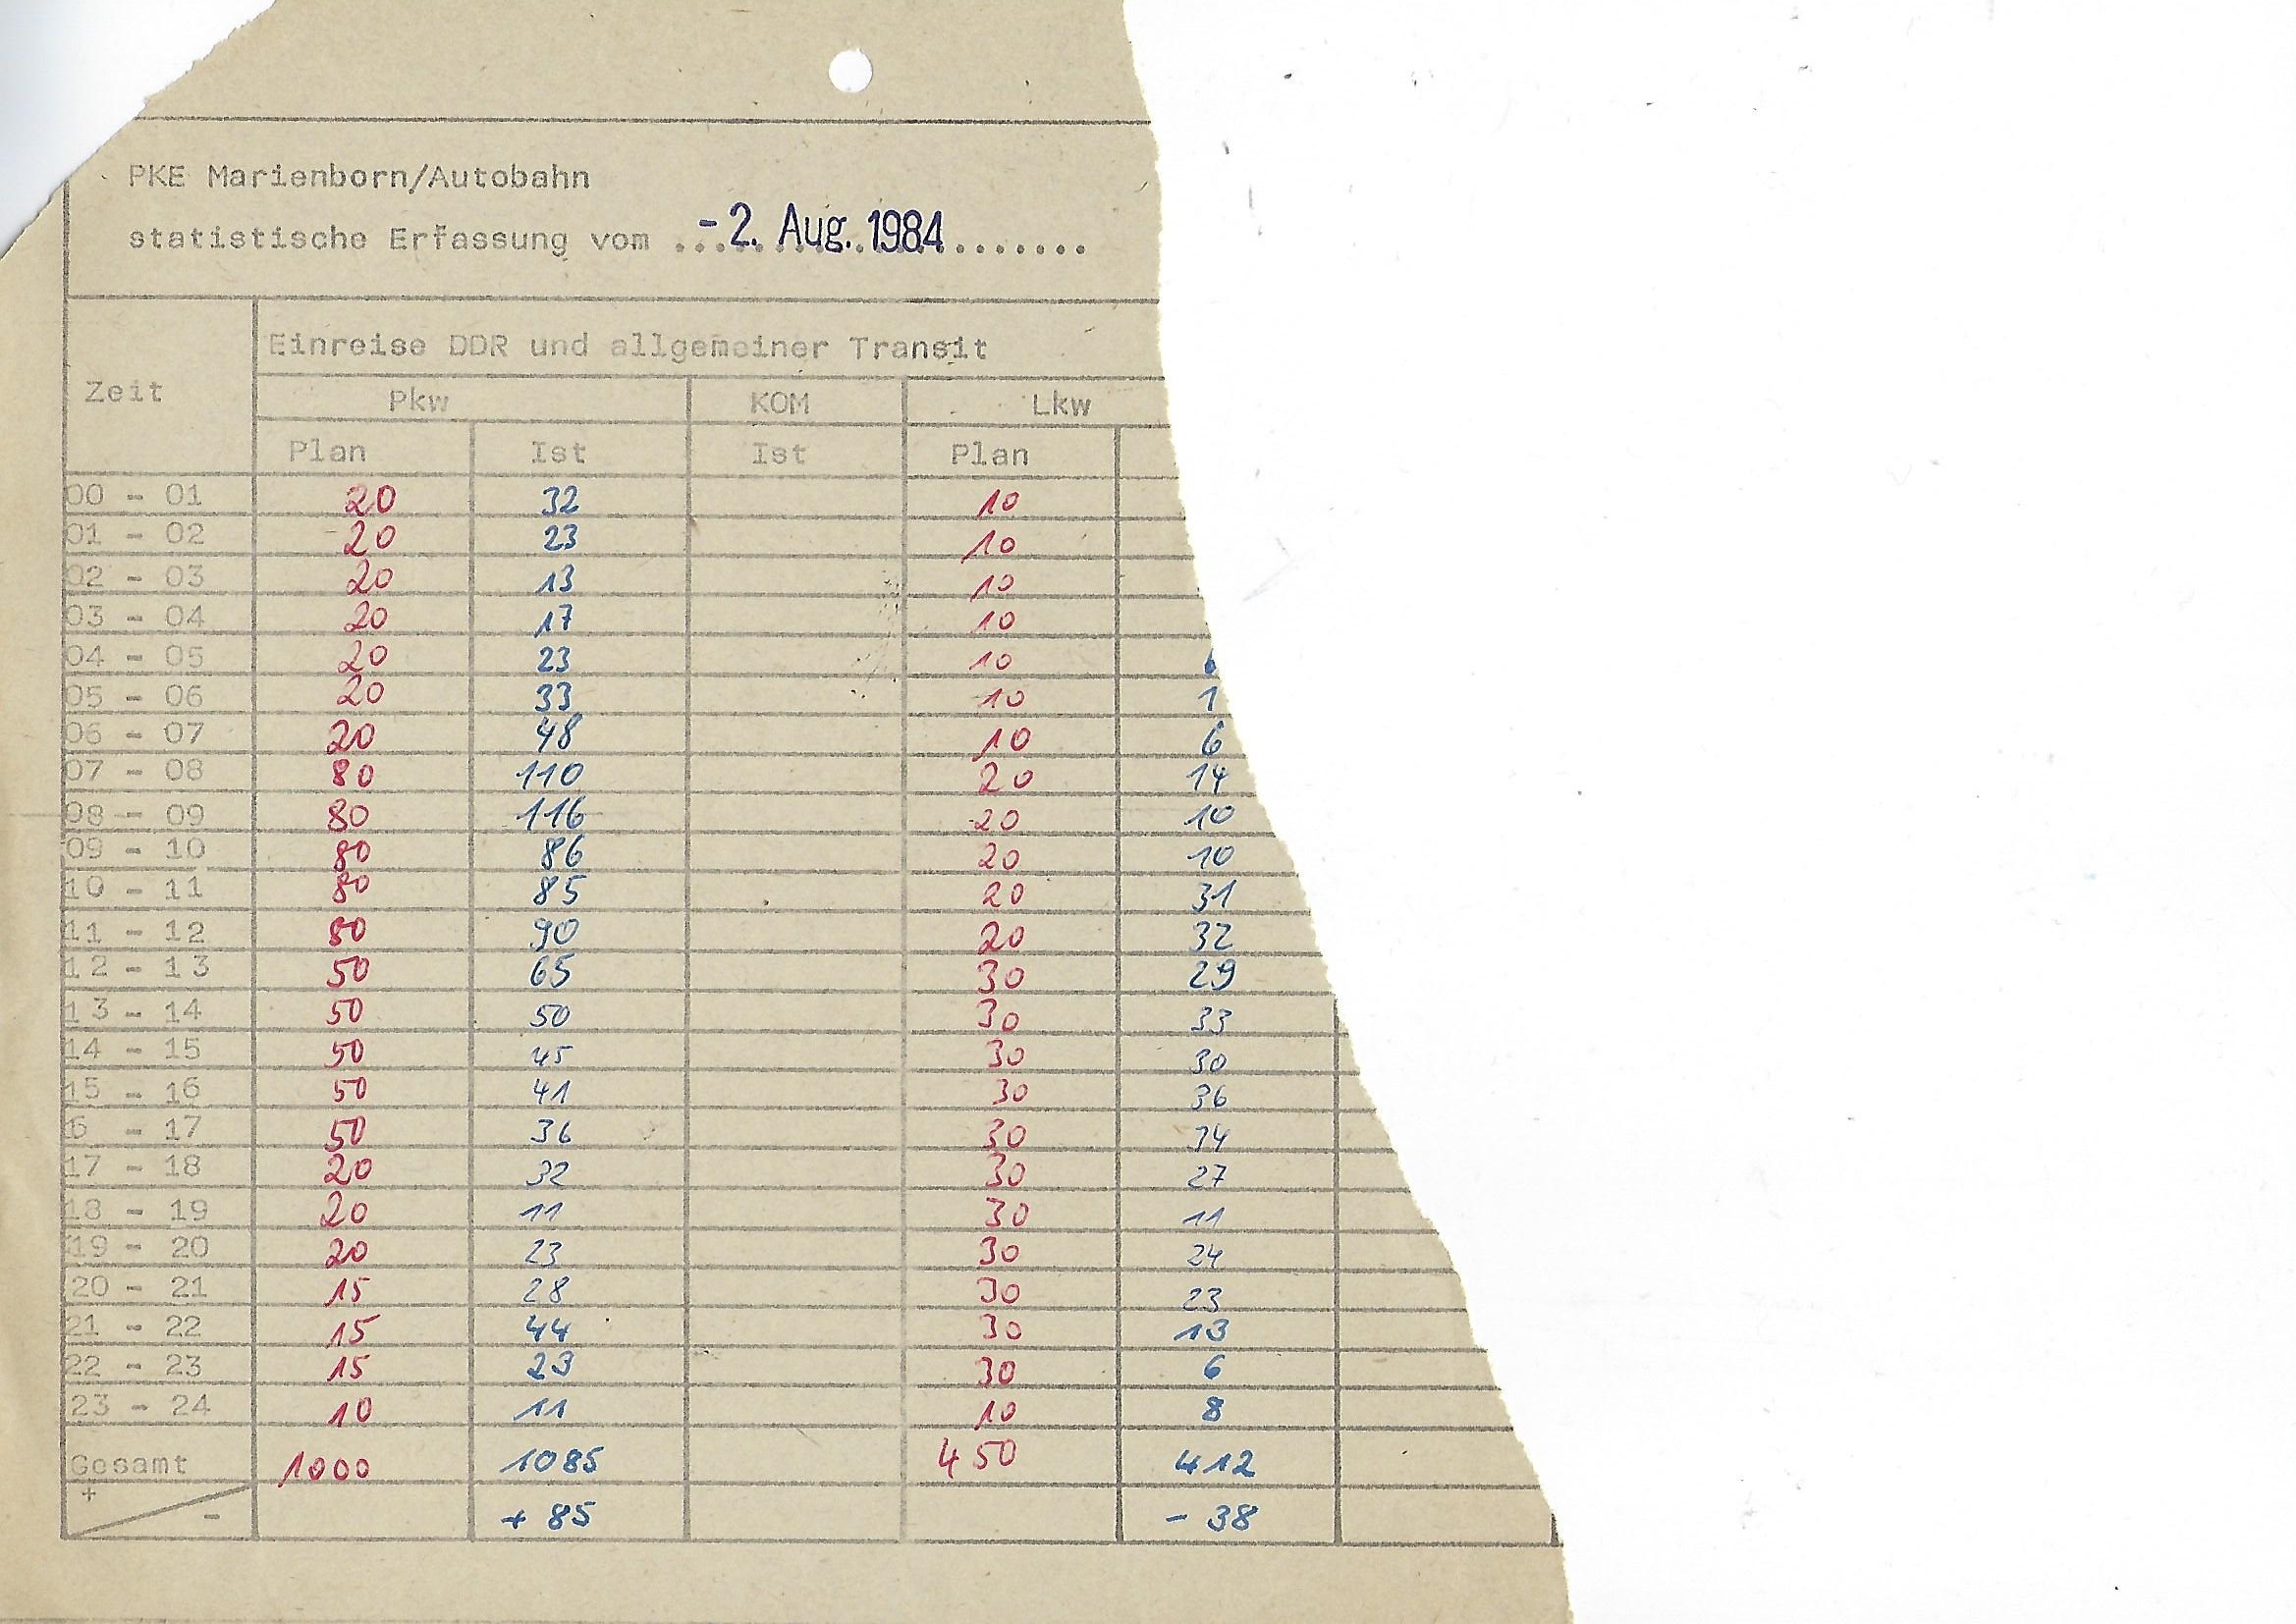 PKE Marienborn/Autobahn
statistische Erfassung vom ...-2. Aug. 1984.......
Einreise DDR und allgemeiner Transit
Zeit
Pkw KOM Lkw
Plan Ist Ist Plan
00 - 01 20 32 10
01 - 02 20 23 10
02 - 03 20 13 10
03 - 04 20 17 10
04 - 05 20 23 10
05 - 06 20 33 10 1
06 - 07 20 48 10 6
07 - 08 80 110 20 14
08 - 09 80 116 20 10
09 - 10 80 86 20 10
10 - 11 80 85 20 31
11 - 12 80 90 20 32
12 - 13 50 65 30 29
13 - 14 50 50 30 33
14 - 15 50 45 30 30
15 - 16 50 41 30 36
6 - 17 50 36 30 34
17 - 18 20 32 30 27
18 - 19 20 11 30 11
19 - 20 20 23 30 24
20 - 21 15 28 30 23
21 - 22 15 44 30 13
22 - 23 15 23 30 6
23 - 24 10 11 10 8
Gesamt 1000 1085 450 412
+ - + 85 - 38